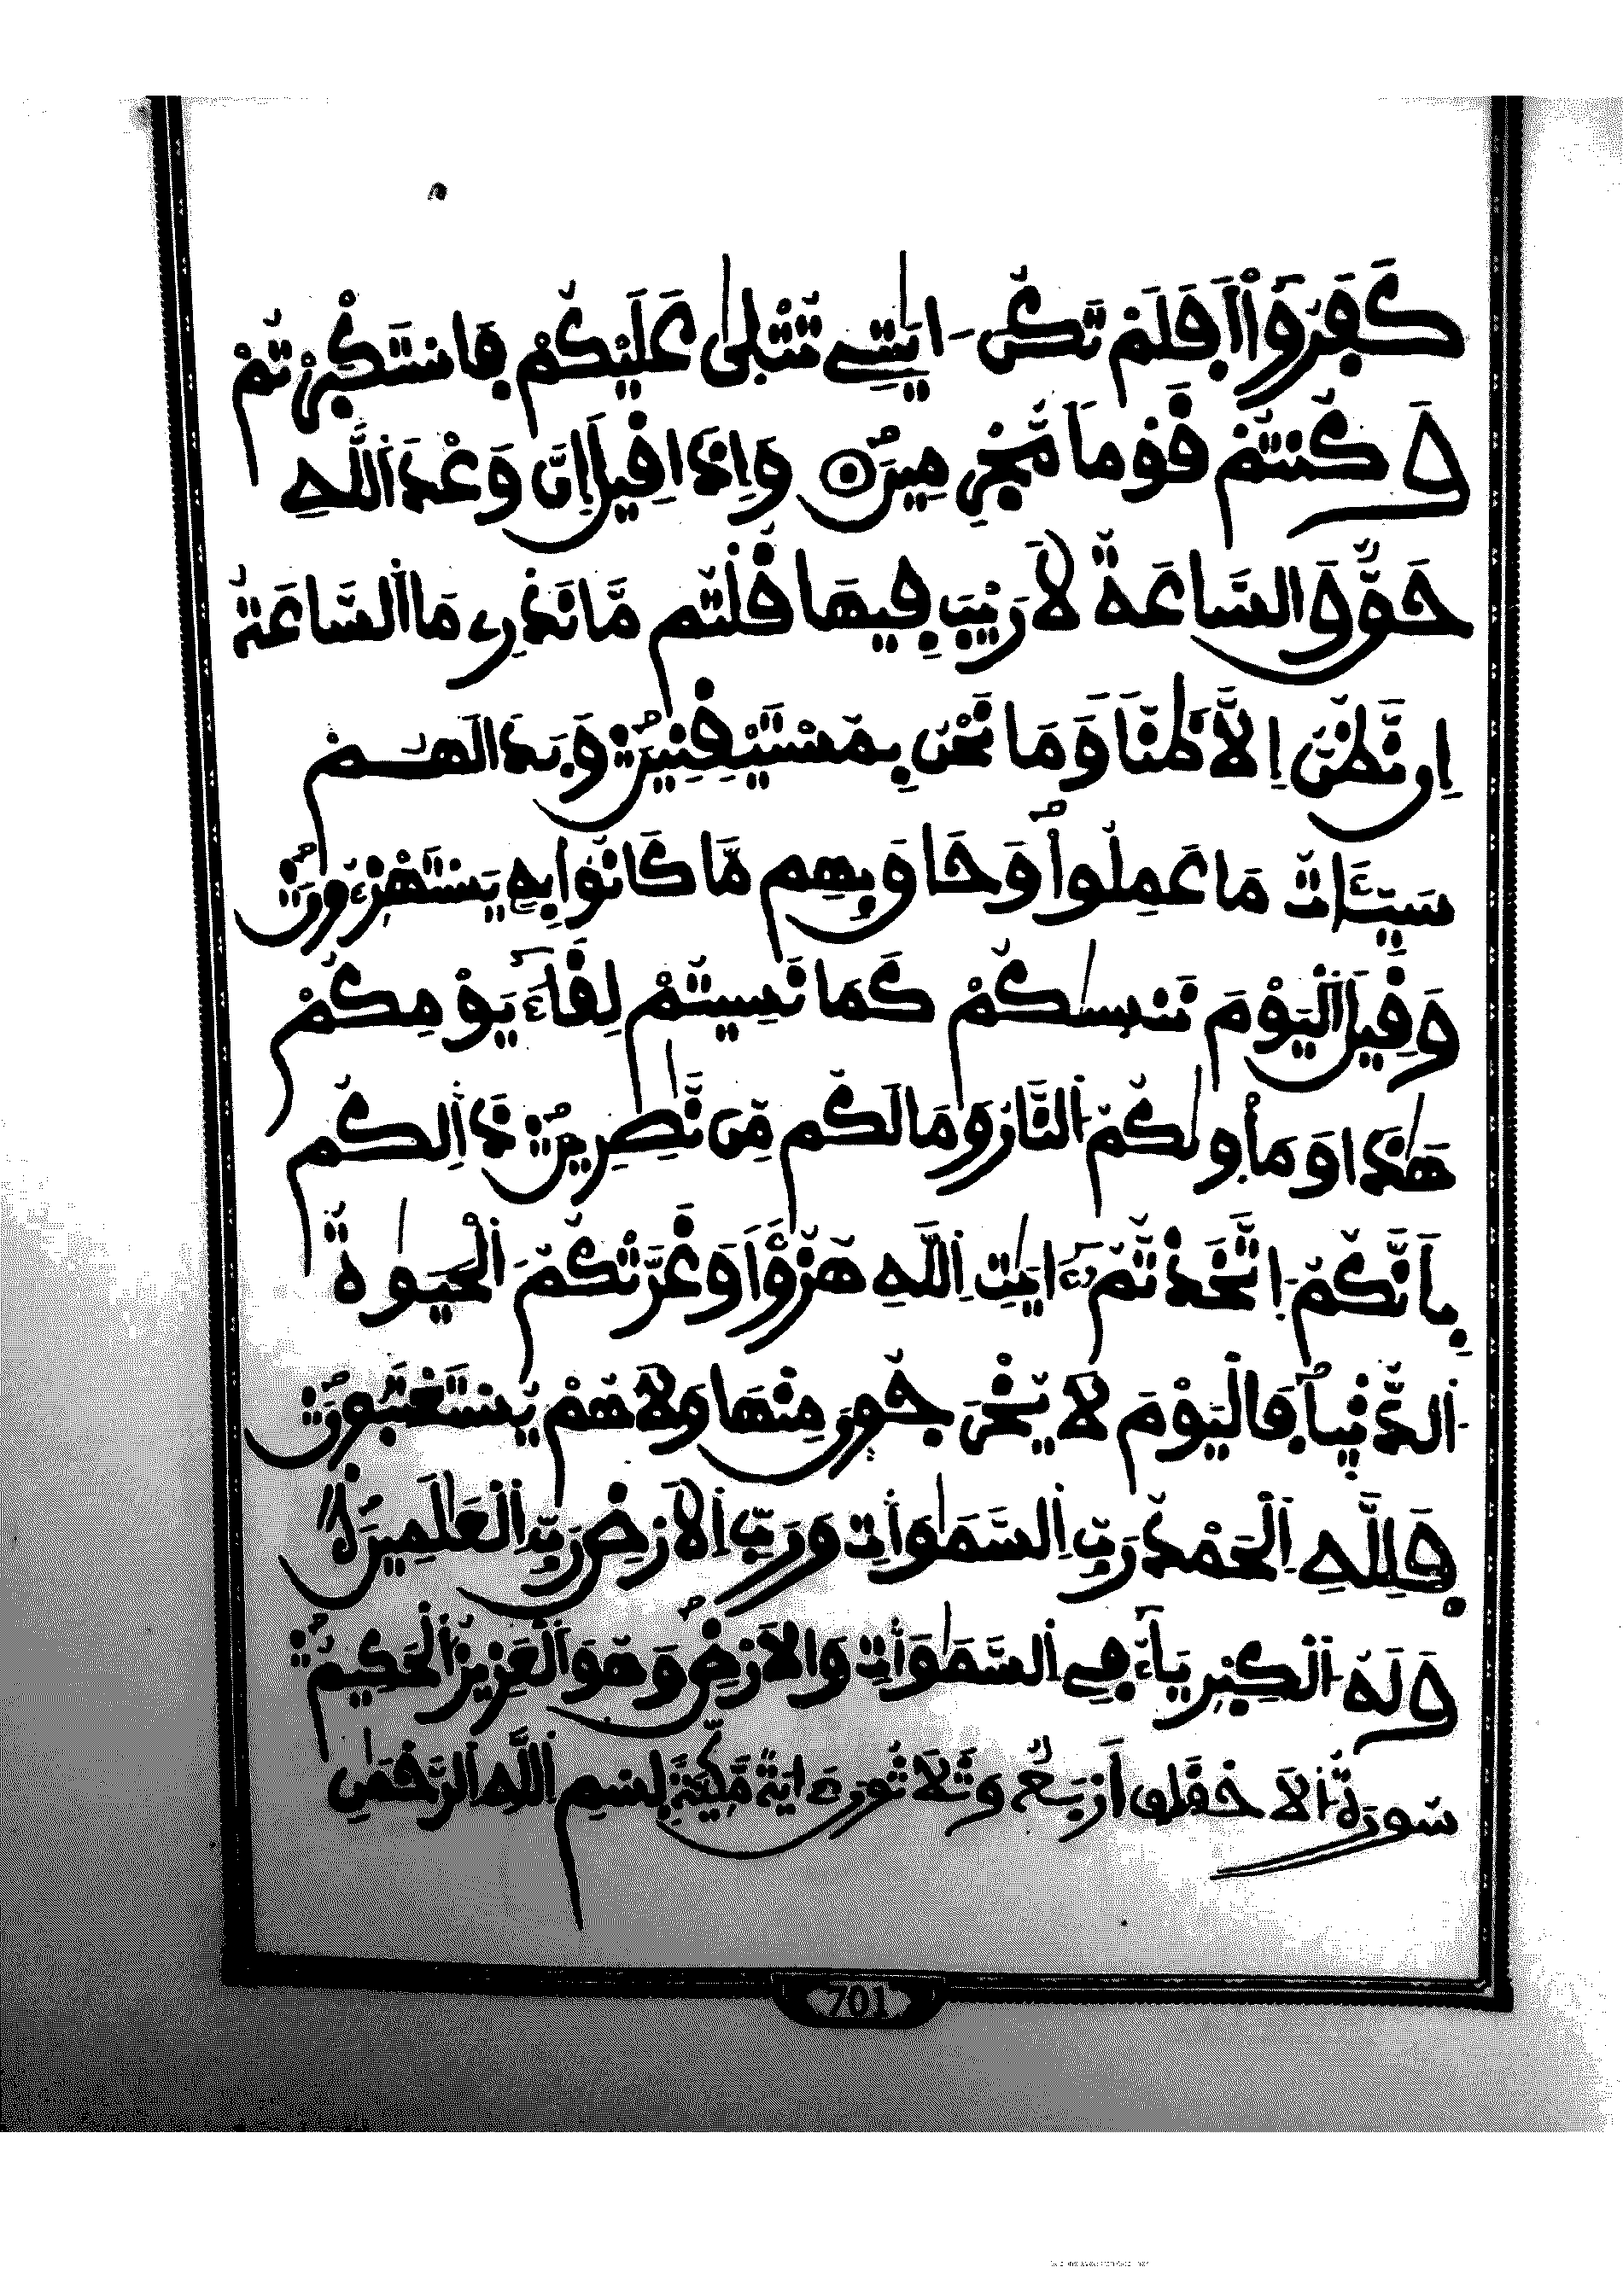 كَفَرُوٓا۟ أَفَلَمْ تَكُنْ ءَايَٰتِے تُتْلَىٰ عَلَيْكُمْ فَاسْتَكْبَرْتُمْ
وَكُنتُمْ قَوْمًا مُّجْرِمِينَ وَإِذَا قِيلَ إِنَّ وَعْدَ اَللَّهِ
حَقٌّ وَالسَّاعَةُ لَا رَيْبَ فِيهَا قُلْتُم مَّا نَدْرِے مَا اَلسَّاعَةُ
إِن نَّظُنُّ إِلَّا ظَنًّا وَمَا نَحْنُ بِمُسْتَيْقِنِينَ وَبَدَا لَهُمْ
سَيِّـَٔاتُ مَا عَمِلُوا۟ وَحَاقَ بِهِم مَّا كَانُوا۟ بِهِۦ يَسْتَهْزِءُونَ
وَقِيلَ اَلْيَوْمَ نَنسَىٰكُمْ كَمَا نَسِيتُمْ لِقَآءَ يَوْمِكُمْ
هَٰذَا وَمَأْوَىٰكُمُ اُلنَّارُ وَمَا لَكُم مِّن نَّٰصِرِينَ ذَٰلِكُم
بِأَنَّكُمُ اُتَّخَذتُّمُۥٓ ءَايَٰتِ اِللَّهِ هُزُؤًا وَغَرَّتْكُمُ اُلْحَيَوٰةُ
اُلدُّنْيَا فَالْيَوْمَ لَا يُخْرَجُونَ مِنْهَا وَلَا هُمْ يُسْتَعْتَبُونَ
فَلِلَّهِ اِلْحَمْدُ رَبِّ اِلسَّمَٰوَٰتِ وَرَبِّ اِلْأَرْضِ رَبِّ اِلْعَٰلَمِينَ
وَلَهُ اُلْكِبْرِيَآءُ فِي اِلسَّمَٰوَٰتِ وَالْأَرْضِ وَهُوَ اَلْعَزِيزُ اُلْحَكِيمُ
سُورَةُ اُلْأَحْقَافِ أَرْبَعٌ وَثَلَاثُونَ ءَايَةً مَّكِّيَّةٌ بِسْمِ اِللَّهِ اِلرَّحْمَٰنِ
701